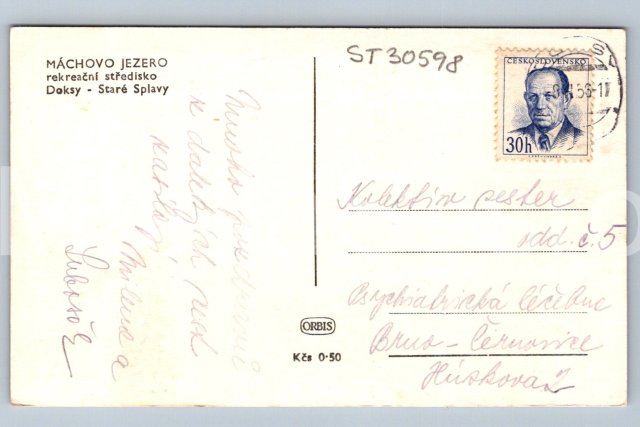 MÁCHOVO JEZERO
rekreační středisko
Doksy - Staré Splavy
ST 30598
ČESKOSLOVENSKO
30h
56-17
Mnoho pozdravů
z dalekých
Milena a
Lubošek
Kolektiv sester
odd. č. 5
Psychiatrická léčebna
Brno - Černovice
Húskova 2
ORBIS
Kčs 0·50